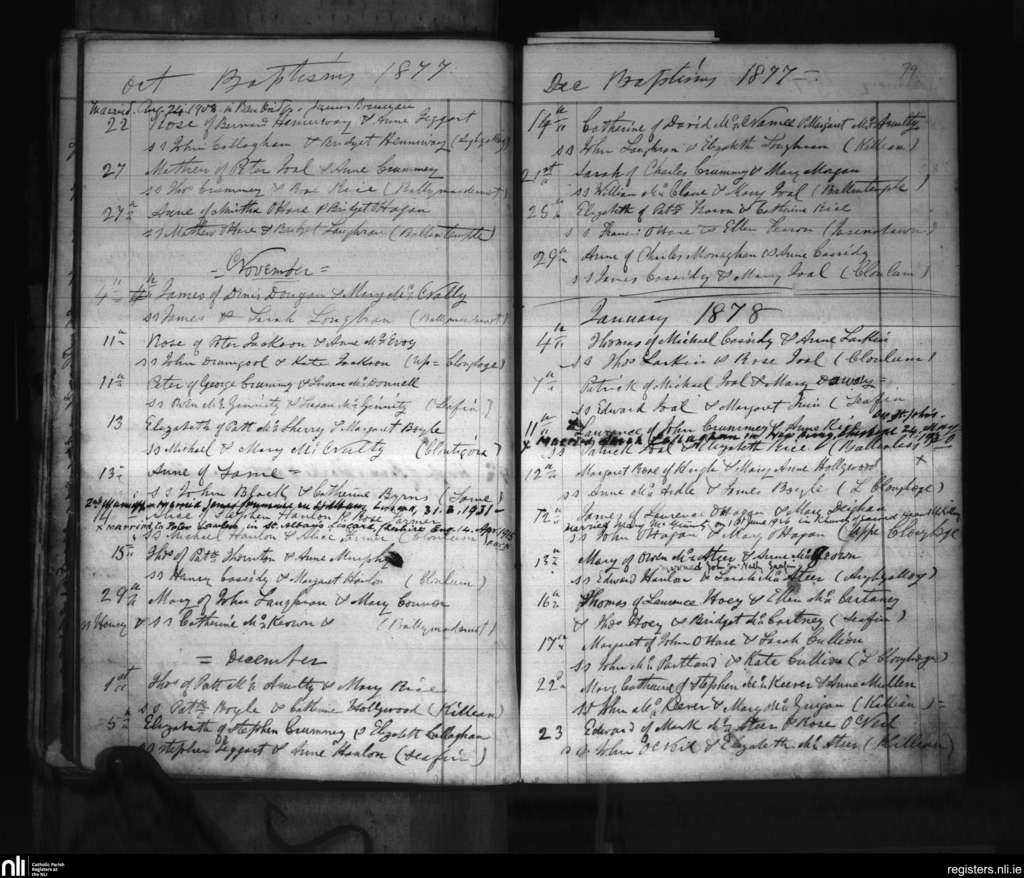 Oct Baptisms 1877.
Married. Aug. 24. 1908 James Brennan
22 Rose of Bernard Hennessy & Anne Teggart
SS John Callaghan & Bridget Hennessy
27 Mathew of Peter Toal & Anne Crummey
SS Thos Crummey & Rose Rice (Ballymacdermot)
27th Anne of O'Hare & Bridget Hagan
SS Mathew O'Hare & Bridget Loughran (Ballintemple)
= November =
4th James of Denis Dougan & Mary McNally
SS James & Sarah Loughran (Ballymacdermot)
11th Rose of Peter Jackson & Anne McEvoy
SS John Dromgool & Kate Jackson (Up= Cloghoge)
11th Peter of George Crummy & Susan McDonnell
SS Owen McGinnity & Susan McGinnity (Seafin)
13 Elizabeth of Patt McSherry & Margaret Boyle
SS Michael & Mary McNulty (Clontigora)
13th Anne of Jane =
SS John Black & Catherine Byrns
2nd Marriage married James 31.8.1931
14 Alice of Stephen Hanlon & Rose Farmer
x married to Peter in St Albans Liscard, Cheshire Eng. 14. Apr 1915
SS Michael Hanlon & Alice Farmer (Clonlum)
15th Thos of Patt Thornton & Anne Murphy
SS Henry Cassidy & Margaret Hanlon (Clonlum)
29th Mary of John Laughran & Mary Connor
SS Henry & SS Catherine McKeown & (Ballymacdermot)
= December
1st Thos of Patt McAnulty & Mary Rice
SS Patt Boyle & Catherine Hollywood (Killean)
5th Elizabeth of Stephen Crummey & Elizabeth Callaghan
SS Stephen Teggart & Anne Hanlon (Seafin)
Dec Baptisms 1877 =. 79
14th Catherine of David McNamee & Margaret McAnulty
SS John Laughran & Elizabeth Loughran (Killean)
21st Sarah of Charles Crummy & Mary Magan
SS William McClane & Mary Toal (Ballintemple)
25th Elizabeth of Patt & Catherine Rice
SS Francis O'Hare & Ellen
29th Anne of Charles Monaghan & Anne Cassidy
SS James Cassidy & Mary Toal (Clonlum)
January 1878
4th Thomas of Michael Cassidy & Anne Larkin
SS Thos Larkin & Rose Toal (Clonlum)
7th Patrick of Michael Toal & Mary
SS Edward Toal & Margaret (Seafin
11th Laurence of John Crummey & Anne
x married Sarah Callaghan in 24. May
SS Patrick Toal & Elizabeth Rice
12th Margaret Rose of Hugh & Mary Anne Hollywood
SS Anne McArdle & James Boyle (L Cloghoge)
12th James of Laurence O'Hagan & Mary Deighan
married Mary McGinnity on 1st June 1916 in
SS John O'Hagan & Mary O'Hagan (Uppr Cloughoge
13th Mary of Owen McAteer & Anne McKeown
married John
SS Edward Hanlon & Sarah McAteer (Aughymoy)
16th Thomas of Laurence Hoey & Ellen McCartney
& Thos Hoey & Bridget McCartney (Seafin)
17th Margaret of John O'Hare & Sarah Cullion
SS John McPartland & Kate Cullion (L Cloughoge)
22nd Mary Catherine of Stephen McKeever & Anne Mullen
SS John McKeever & Mary McGuigan (Killean) =
23 Edward of Mark McAteer & Rose O'Neil
SS John O'Neil & Elizabeth McAteer (Killean)
nli Catholic Parish
Registers at
the NLI
registers.nli.ie